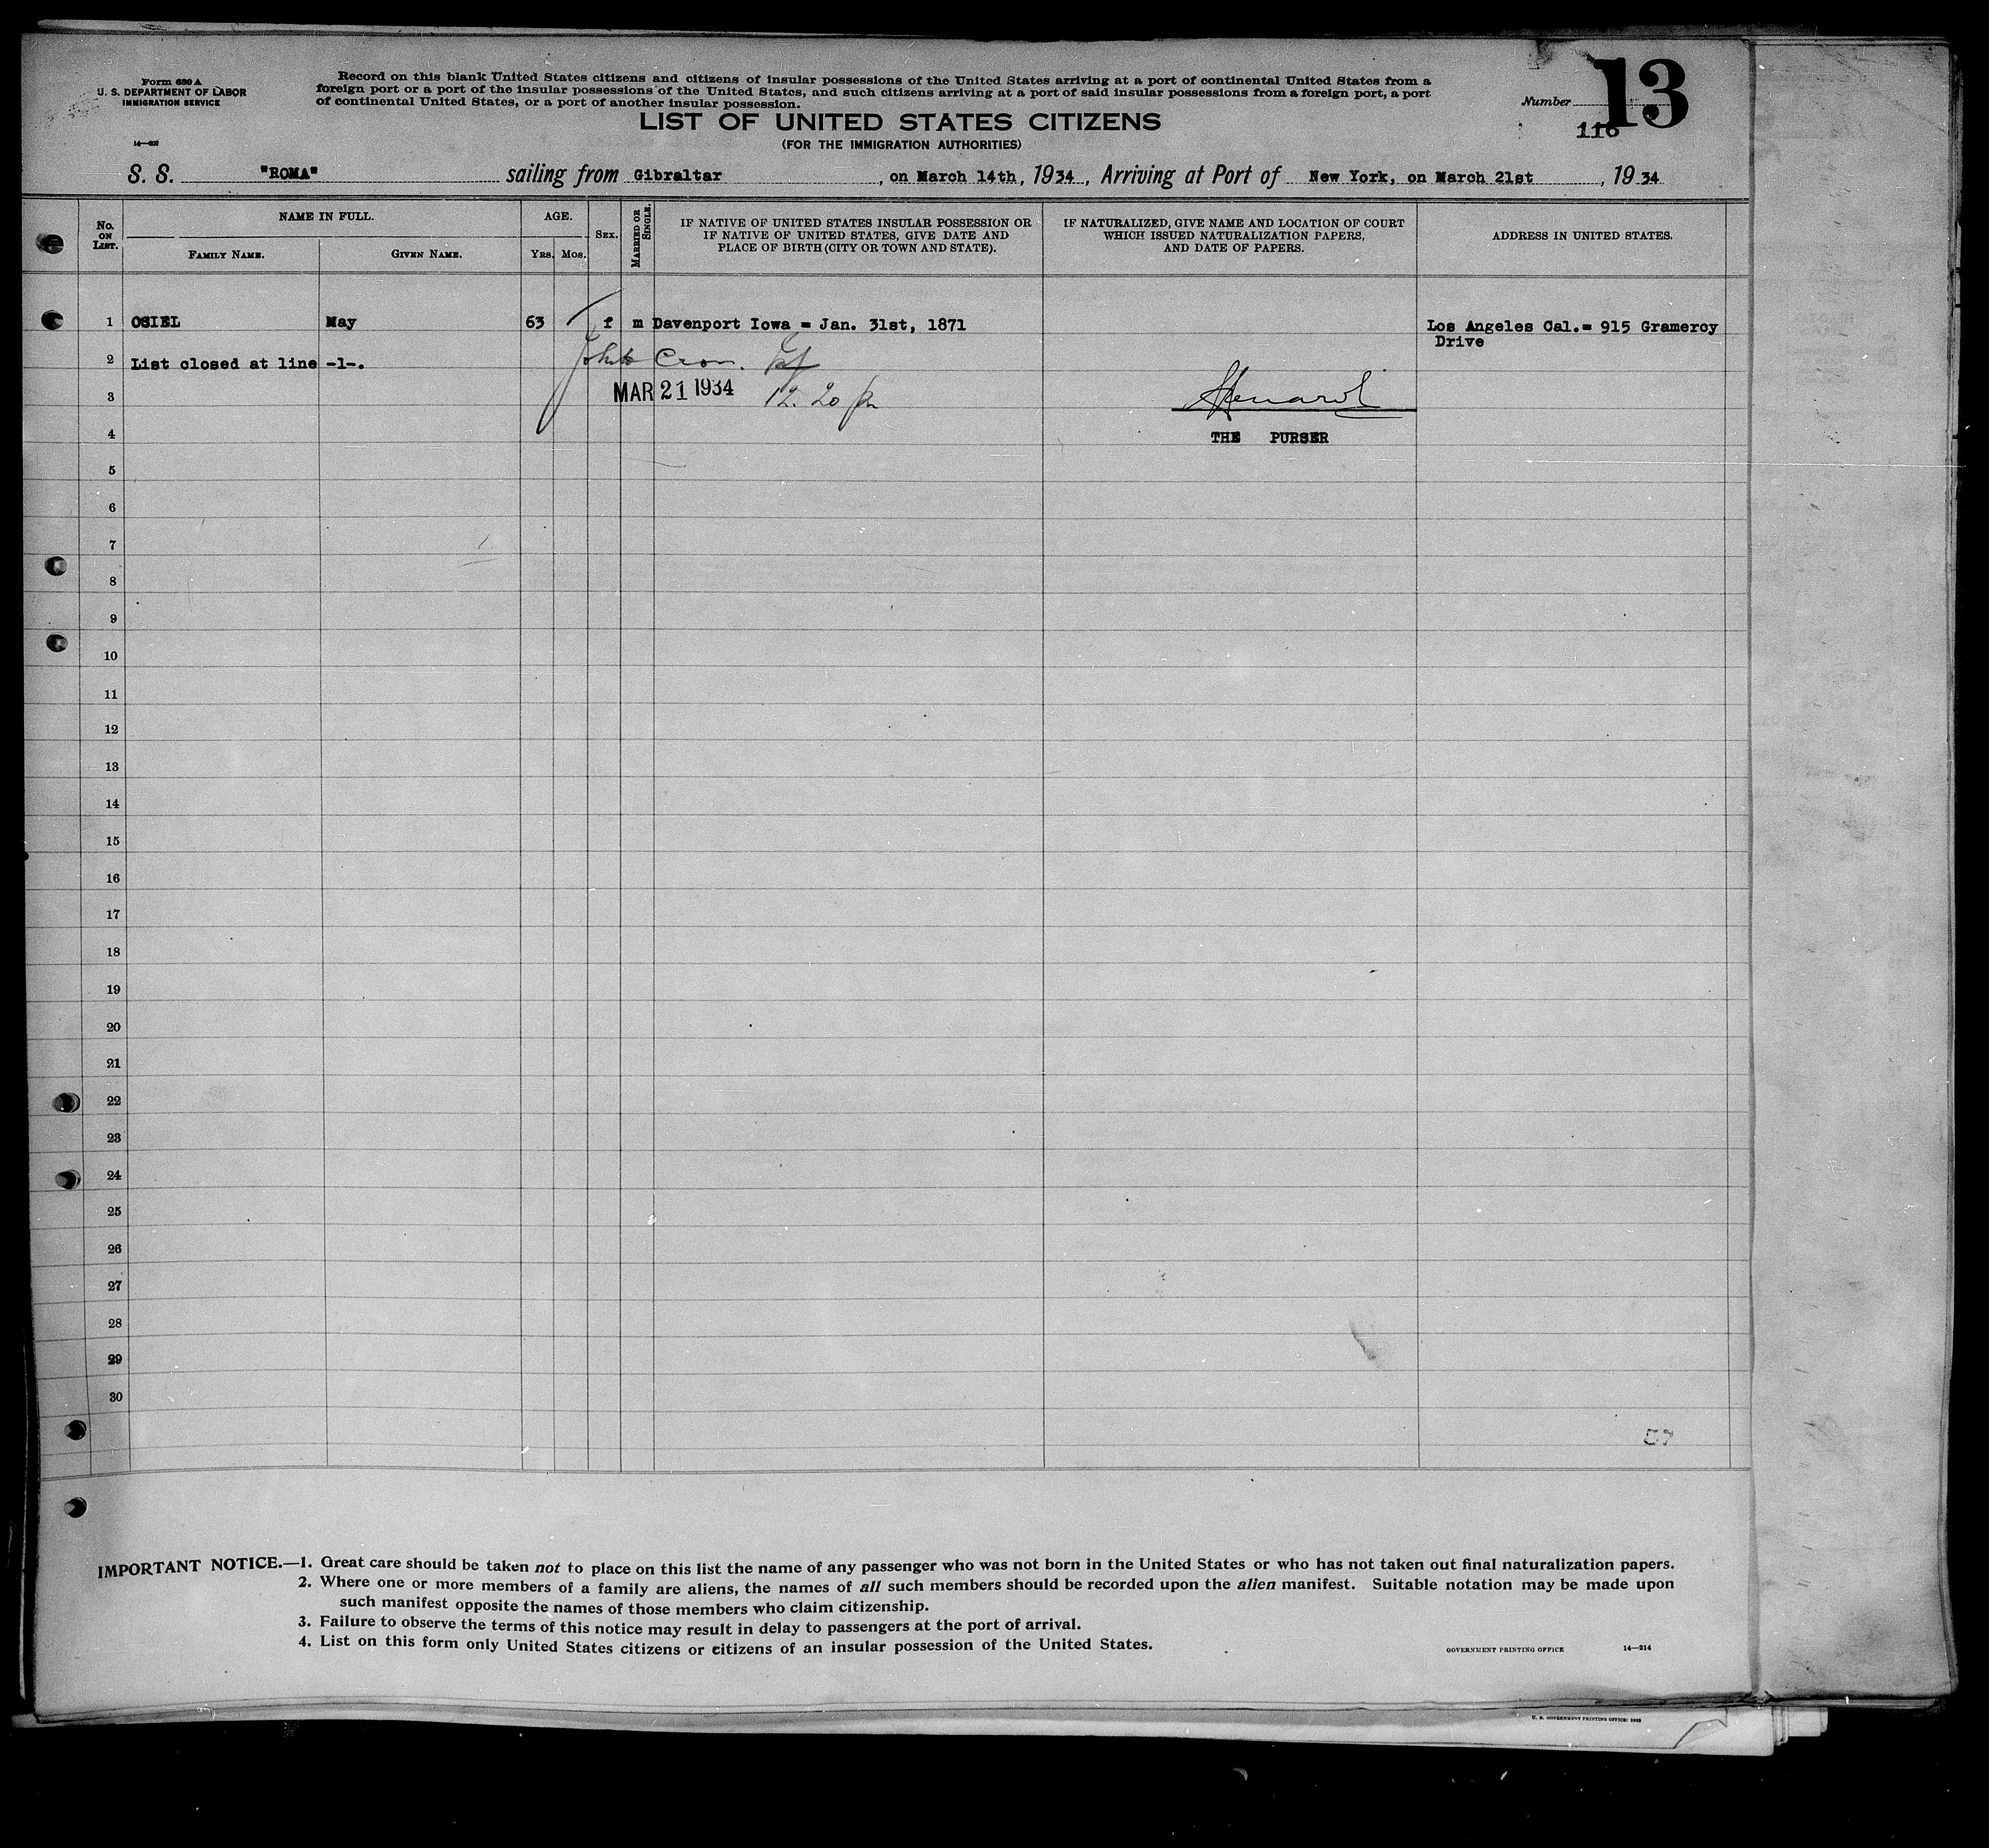 Form 630 A
U. S. DEPARTMENT OF LABOR
IMMIGRATION SERVICE
Record on this blank United States citizens and citizens of insular possessions of the United States arriving at a port of continental United States from a
foreign port or a port of the insular possessions of the United States, and such citizens arriving at a port of said insular possessions from a foreign port, a port
of continental United States, or a port of another insular possession.
Number 13
116
LIST OF UNITED STATES CITIZENS
(FOR THE IMMIGRATION AUTHORITIES)
S. S. "ROMA" sailing from Gibraltar, on March 14th, 1934, Arriving at Port of New York, on March 21st, 1934
No. ON LIST.
NAME IN FULL.
FAMILY NAME.
GIVEN NAME.
AGE.
YRS. MOS.
SEX.
MARRIED OR SINGLE.
IF NATIVE OF UNITED STATES INSULAR POSSESSION OR
IF NATIVE OF UNITED STATES, GIVE DATE AND
PLACE OF BIRTH (CITY OR TOWN AND STATE).
IF NATURALIZED, GIVE NAME AND LOCATION OF COURT
WHICH ISSUED NATURALIZATION PAPERS,
AND DATE OF PAPERS.
ADDRESS IN UNITED STATES.
1 OSIEL May 63 f m Davenport Iowa = Jan. 31st, 1871 Los Angeles Cal.= 915 Gramercy
Drive
2 List closed at line -1-.
3 MAR 21 1934 12.20 pm
4 THE PURSER
5
6
7
8
9
10
11
12
13
14
15
16
17
18
19
20
21
22
23
24
25
26
27
28
29
30
57
IMPORTANT NOTICE.—1. Great care should be taken not to place on this list the name of any passenger who was not born in the United States or who has not taken out final naturalization papers.
2. Where one or more members of a family are aliens, the names of all such members should be recorded upon the alien manifest. Suitable notation may be made upon
such manifest opposite the names of those members who claim citizenship.
3. Failure to observe the terms of this notice may result in delay to passengers at the port of arrival.
4. List on this form only United States citizens or citizens of an insular possession of the United States.
GOVERNMENT PRINTING OFFICE 14—214